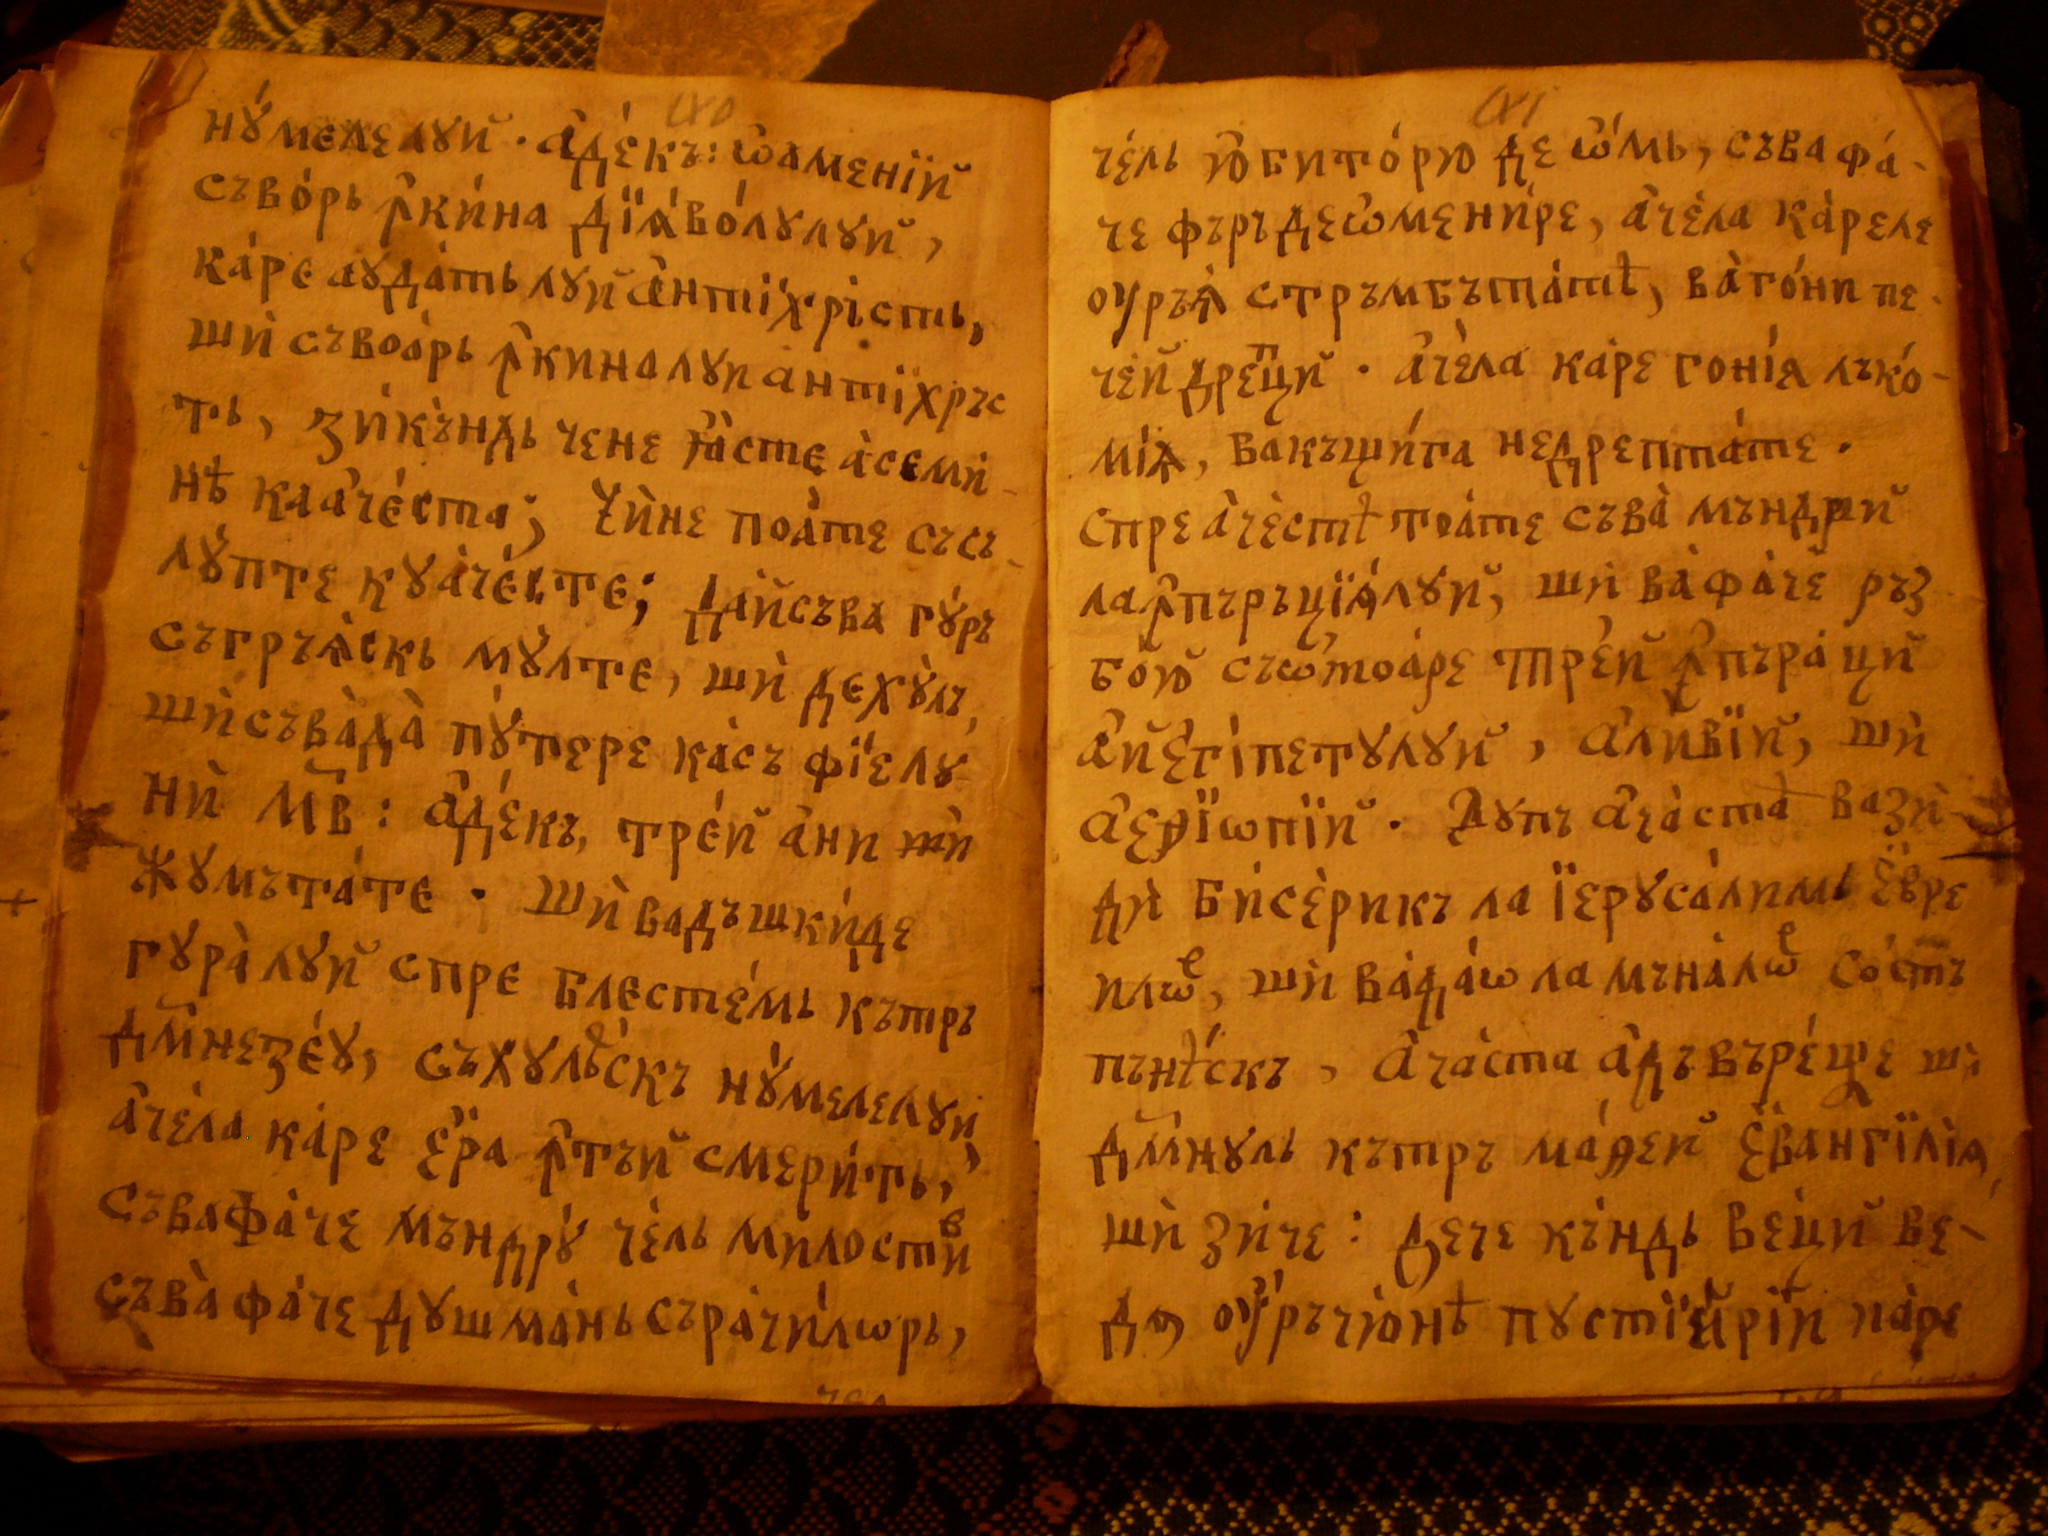 нꙋ́мелелꙋй . а҆де́къ: ѡ҆аменїй
съво́рь ꙟ҆ки́на дїа́во́лꙋлꙋй,
ка́ре аꙋда́ть лꙋй а҆нтїхрі́сть,
шѝ съвоа́рь ꙟ҆кина лꙋи антїхръс
ть, зи́къндь чене ꙗ҆́сте а̀семи-
нѣ каа҆че́ста; Чи́не поа́те съсъ-
лꙋ́пте кꙋаче́сте; Дайсъва гꙋ́ръ
съгръѧ́скь мꙋ́лте, шѝ дехꙋ́лъ,
шѝ съва̀да̀ пꙋ́тере ка́съ фїе лꙋ-
нѝ м҃в: а҆де́къ, тре́й а҆ни шѝ
жꙋмъта́те . Шѝ вадъшки́де
гꙋра̀ лꙋй спре блесте́мь кътръ
дм҃незе́ꙋ, съхꙋлѣ́скъ нꙋ́мелелꙋй
а҆че́ла ка́ре є҆ра ꙟ҆тъй смери́ть,
съвафа́че мъндрꙋ́ че́ль милостив
съва̀ фа́че дꙋшма́нь съра́чи́лѡрь,
чел
че́ль юбито́рю де ѡ҆́мь, съва фа́-
че фъръдеѡ҆мени́ре, а҆че́ла ка́реле
оуръ́ꙗ стръмбъта́тѣ, ва̀ го́ни пе-
чей дрепци́й . а҆че́ла ка́ре гоні́ѧ лъко́-
мі́ѧ, вакъщи́га недрепта́те .
спре а҆че́стѣ тоа́те съва̀ мъндрий
ла ꙟ҆пъръцїѧ́лꙋй, шѝ ва̀фа́че ръз
бо́ю съѡ҆моа́ре тре́й ꙟ҆пъра́ций
а҆й є҆гі́петꙋлꙋй, а҆ли́вїй, шѝ
а҆еѳїѡпїй . Дꙋпъ а҆ча́ста вази-
дѝ бисе́рикъ ла їерꙋса́лимь є҆вре
илѡр, шѝ ва̀да́ѡ ла мъна́лѡр со́стъ
пънѣ́скъ, а҆ча́ста а҆дъвъре́ще шѝ
дм҃нꙋль кътръ маѳе́й є҆вангїлі́ѧ,
шѝ зи́че: де́че къндь ве́ций ве-
дѣ оу҆ръчю́нѣ пꙋстїи́рїй ка́ре